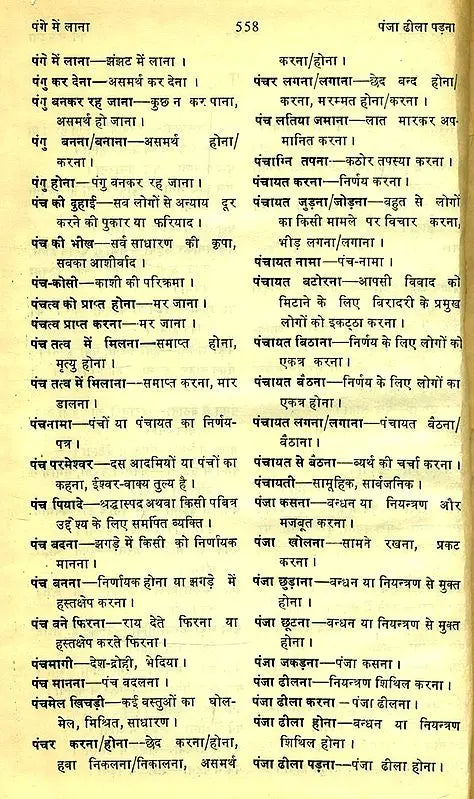 पंगे में लाना
558
पंजा ढीला पड़ना
पंगे में लाना—झंझट में लाना ।
पंगु कर देना—असमर्थ कर देना ।
पंगु बनकर रह जाना—कुछ न कर पाना,
असमर्थ हो जाना ।
पंगु बनना/बनाना—असमर्थ होना/
करना ।
पंगु होना—पंगु बनकर रह जाना ।
पंच की दुहाई—सब लोगों से अन्याय दूर
करने की पुकार या फरियाद ।
पंच की भीख—सर्व साधारण की कृपा,
सबका आशीर्वाद ।
पंच-कोली—काशी की परिक्रमा ।
पंचत्व को प्राप्त होना—मर जाना ।
पंचत्व प्राप्त करना—मर जाना ।
पंच तत्व में मिलना—समाप्त होना,
मृत्यु होना ।
पंच तत्व में मिलाना—समाप्त करना, मार
डालना ।
पंचनामा—पंचों या पंचायत का निर्णय-
पत्र ।
पंच परमेश्वर—दस आदमियों या पंचों का
कहना, ईश्वर-वाक्य तुल्य है ।
पंच पियादे—श्रद्धास्पद अथवा किसी पवित्र
उद्देश्य के लिए समर्पित व्यक्ति ।
पंच बदना—झगड़े में किसी को निर्णायक
मानना ।
पंच बनना—निर्णायक होना या झगड़े में
हस्तक्षेप करना ।
पंच बने फिरना—राय देते फिरना या
हस्तक्षेप करते फिरना ।
पंचमागी—देश-द्रोही, भेदिया ।
पंच मानना—पंच बदलना ।
पंचमेल खिचड़ी—कई वस्तुओं का घोल-
मेल, मिश्रित, साधारण ।
पंचर करना/होना—छेद करना/होना,
हवा निकलना/निकालना, असमर्थ
करना/होना ।
पंचर लगना/लगाना—छेद बन्द होना/
करना, मरम्मत होना/करना ।
पंच लतिया जमाना—लात मारकर अप-
मानित करना ।
पंचाग्नि तपना—कठोर तपस्या करना ।
पंचायत करना—निर्णय करना ।
पंचायत जुड़ना/जोड़ना—बहुत से लोगों
का किसी मामले पर विचार करना,
भीड़ लगना/लगाना ।
पंचायत नामा—पंच-नामा ।
पंचायत बटोरना—आपसी विवाद को
मिटाने के लिए विरादरी के प्रमुख
लोगों को इकट्ठा करना ।
पंचायत बिठाना—निर्णय के लिए लोगों को
एकत्र करना ।
पंचायत बैठना—निर्णय के लिए लोगों का
एकत्र होना ।
पंचायत लगना/लगाना—पंचायत बैठना/
बैठाना ।
पंचायत से बैठना—व्यर्थ की चर्चा करना ।
पंचायती—सामूहिक, सार्वजनिक ।
पंजा कसना—बन्धन या नियन्त्रण और
मजबूत करना ।
पंजा खोलना—सामने रखना, प्रकट
करना ।
पंजा छुड़ाना—बन्धन या नियन्त्रण से मुक्त
होना ।
पंजा छूटना—बन्धन या नियन्त्रण से मुक्त
होना ।
पंजा जकड़ना—पंजा कसना ।
पंजा ढीलना—नियन्त्रण शिथिल करना ।
पंजा ढीला करना – पंजा ढीलना ।
पंजा ढीला होना—बन्धन या नियन्त्रण
शिथिल होना ।
पंजा ढीला पड़ना—पंजा ढीला होना ।